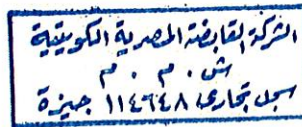 الشركة القابضة المصرية الكويتية
ش . م . م
سجل تجاري ١١٤٦٤٨ جيزة